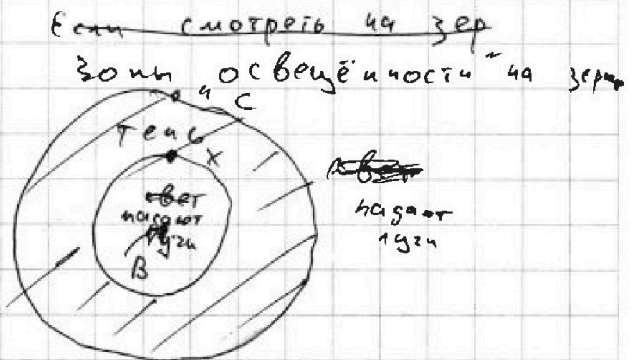 Если смотреть на зер
Зоны "освещённости" на зерк
C
тень
X
свет
свет
падают
лучи
B
падают
лучи